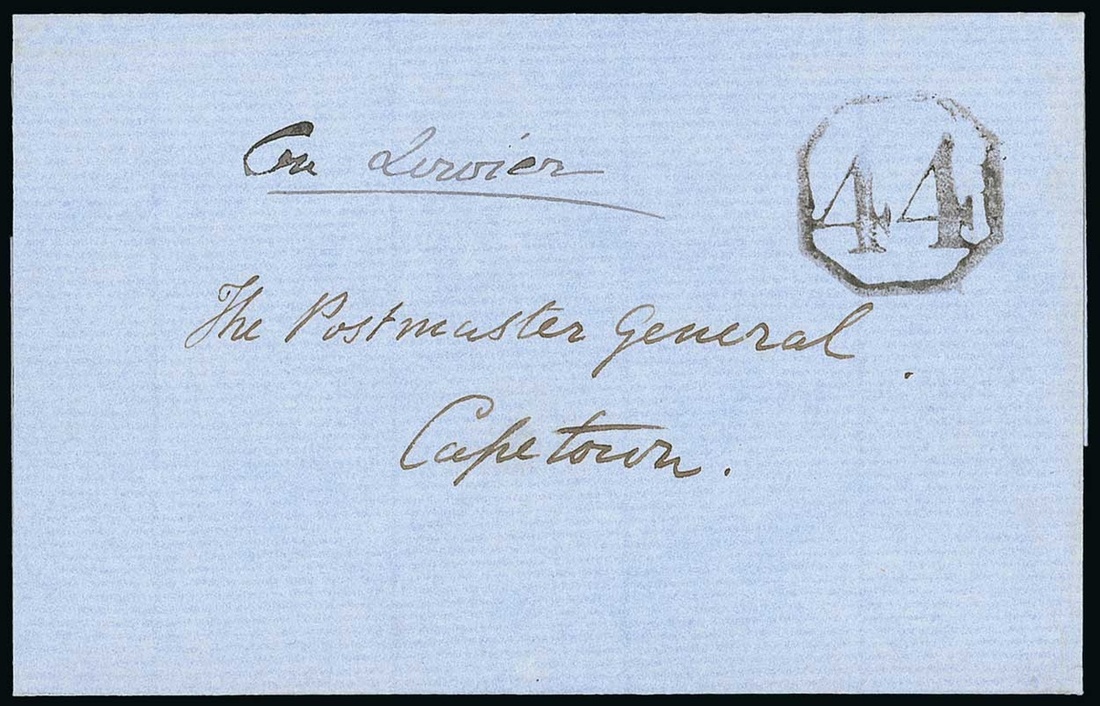 On Service
44
The Postmaster General.
Capetown.